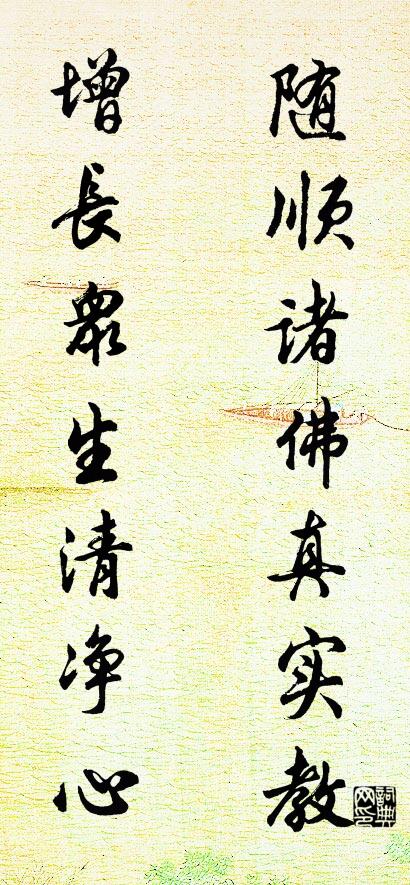 随顺诸佛真实教
增長衆生清净心
詞典网印